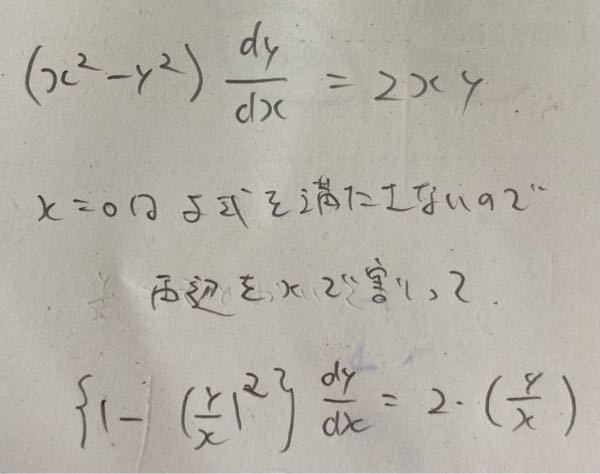 (x²-y²) dy/dx = 2xy
x=0は与式を満たさないので
両辺をxで割って.
{1-(y/x)²} dy/dx = 2·(y/x)